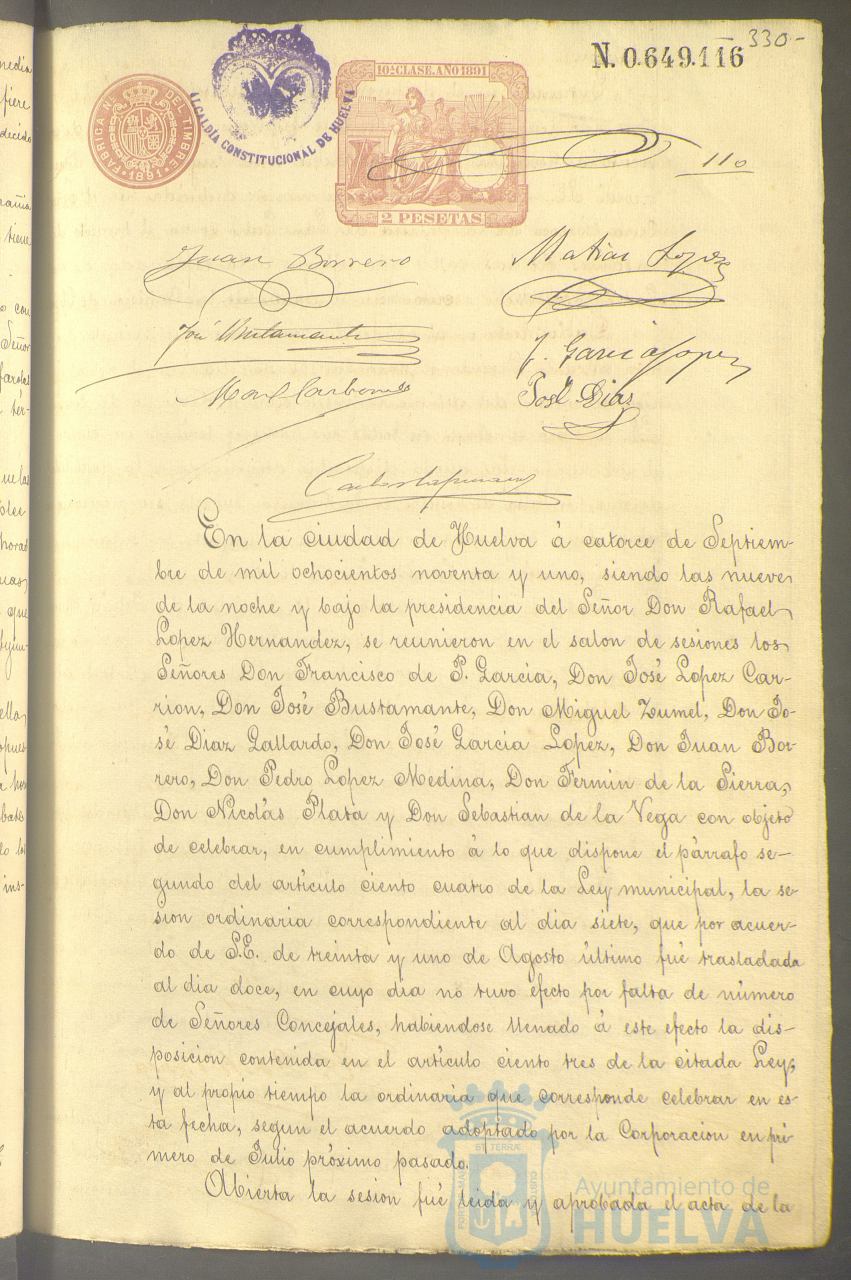 330-
N. 0.649.116
10ª CLASE. AÑO 1891
FABRICA NAL DEL TIMBRE
1891
ALCALDÍA CONSTITUCIONAL DE HUELVA
2 PESETAS
110
Juan Borrero
Matias Lopez
José Bustamante
J. Garcia Lopez
José Dias
En la ciudad de Huelva á catorce de Septiem-
bre de mil ochocientos noventa y uno, siendo las nueve
de la noche y bajo la presidencia del Señor Don Rafael
Lopez Hernandez, se reunieron en el salon de sesiones los
Señores Don Francisco de P. Garcia, Don José Lopez Car-
rion, Don José Bustamante, Don Miguel Zumel, Don Jo-
sé Diaz Gallardo, Don José Garcia Lopez, Don Juan Bor-
rero, Don Pedro Lopez Medina, Don Fermin de la Sierra,
Don Nicolás Plata y Don Sebastian de la Vega con objeto
de celebrar, en cumplimiento á lo que dispone el párrafo se-
gundo del artículo ciento cuatro de la Ley municipal, la se-
sion ordinaria correspondiente al dia siete, que por acuer-
do de S.E. de treinta y uno de Agosto último fué trasladada
al dia doce, en cuyo dia no tuvo efecto por falta de número
de Señores Concejales, habiendose llenado á este efecto la dis-
posicion contenida en el artículo ciento tres de la citada Ley,
y al propio tiempo la ordinaria que corresponde celebrar en es-
ta fecha, segun el acuerdo adoptado por la Corporacion en pri-
mero de Julio próximo pasado.
Abierta la sesion fué leida y aprobada el acta de la
Ayuntamiento de
HUELVA